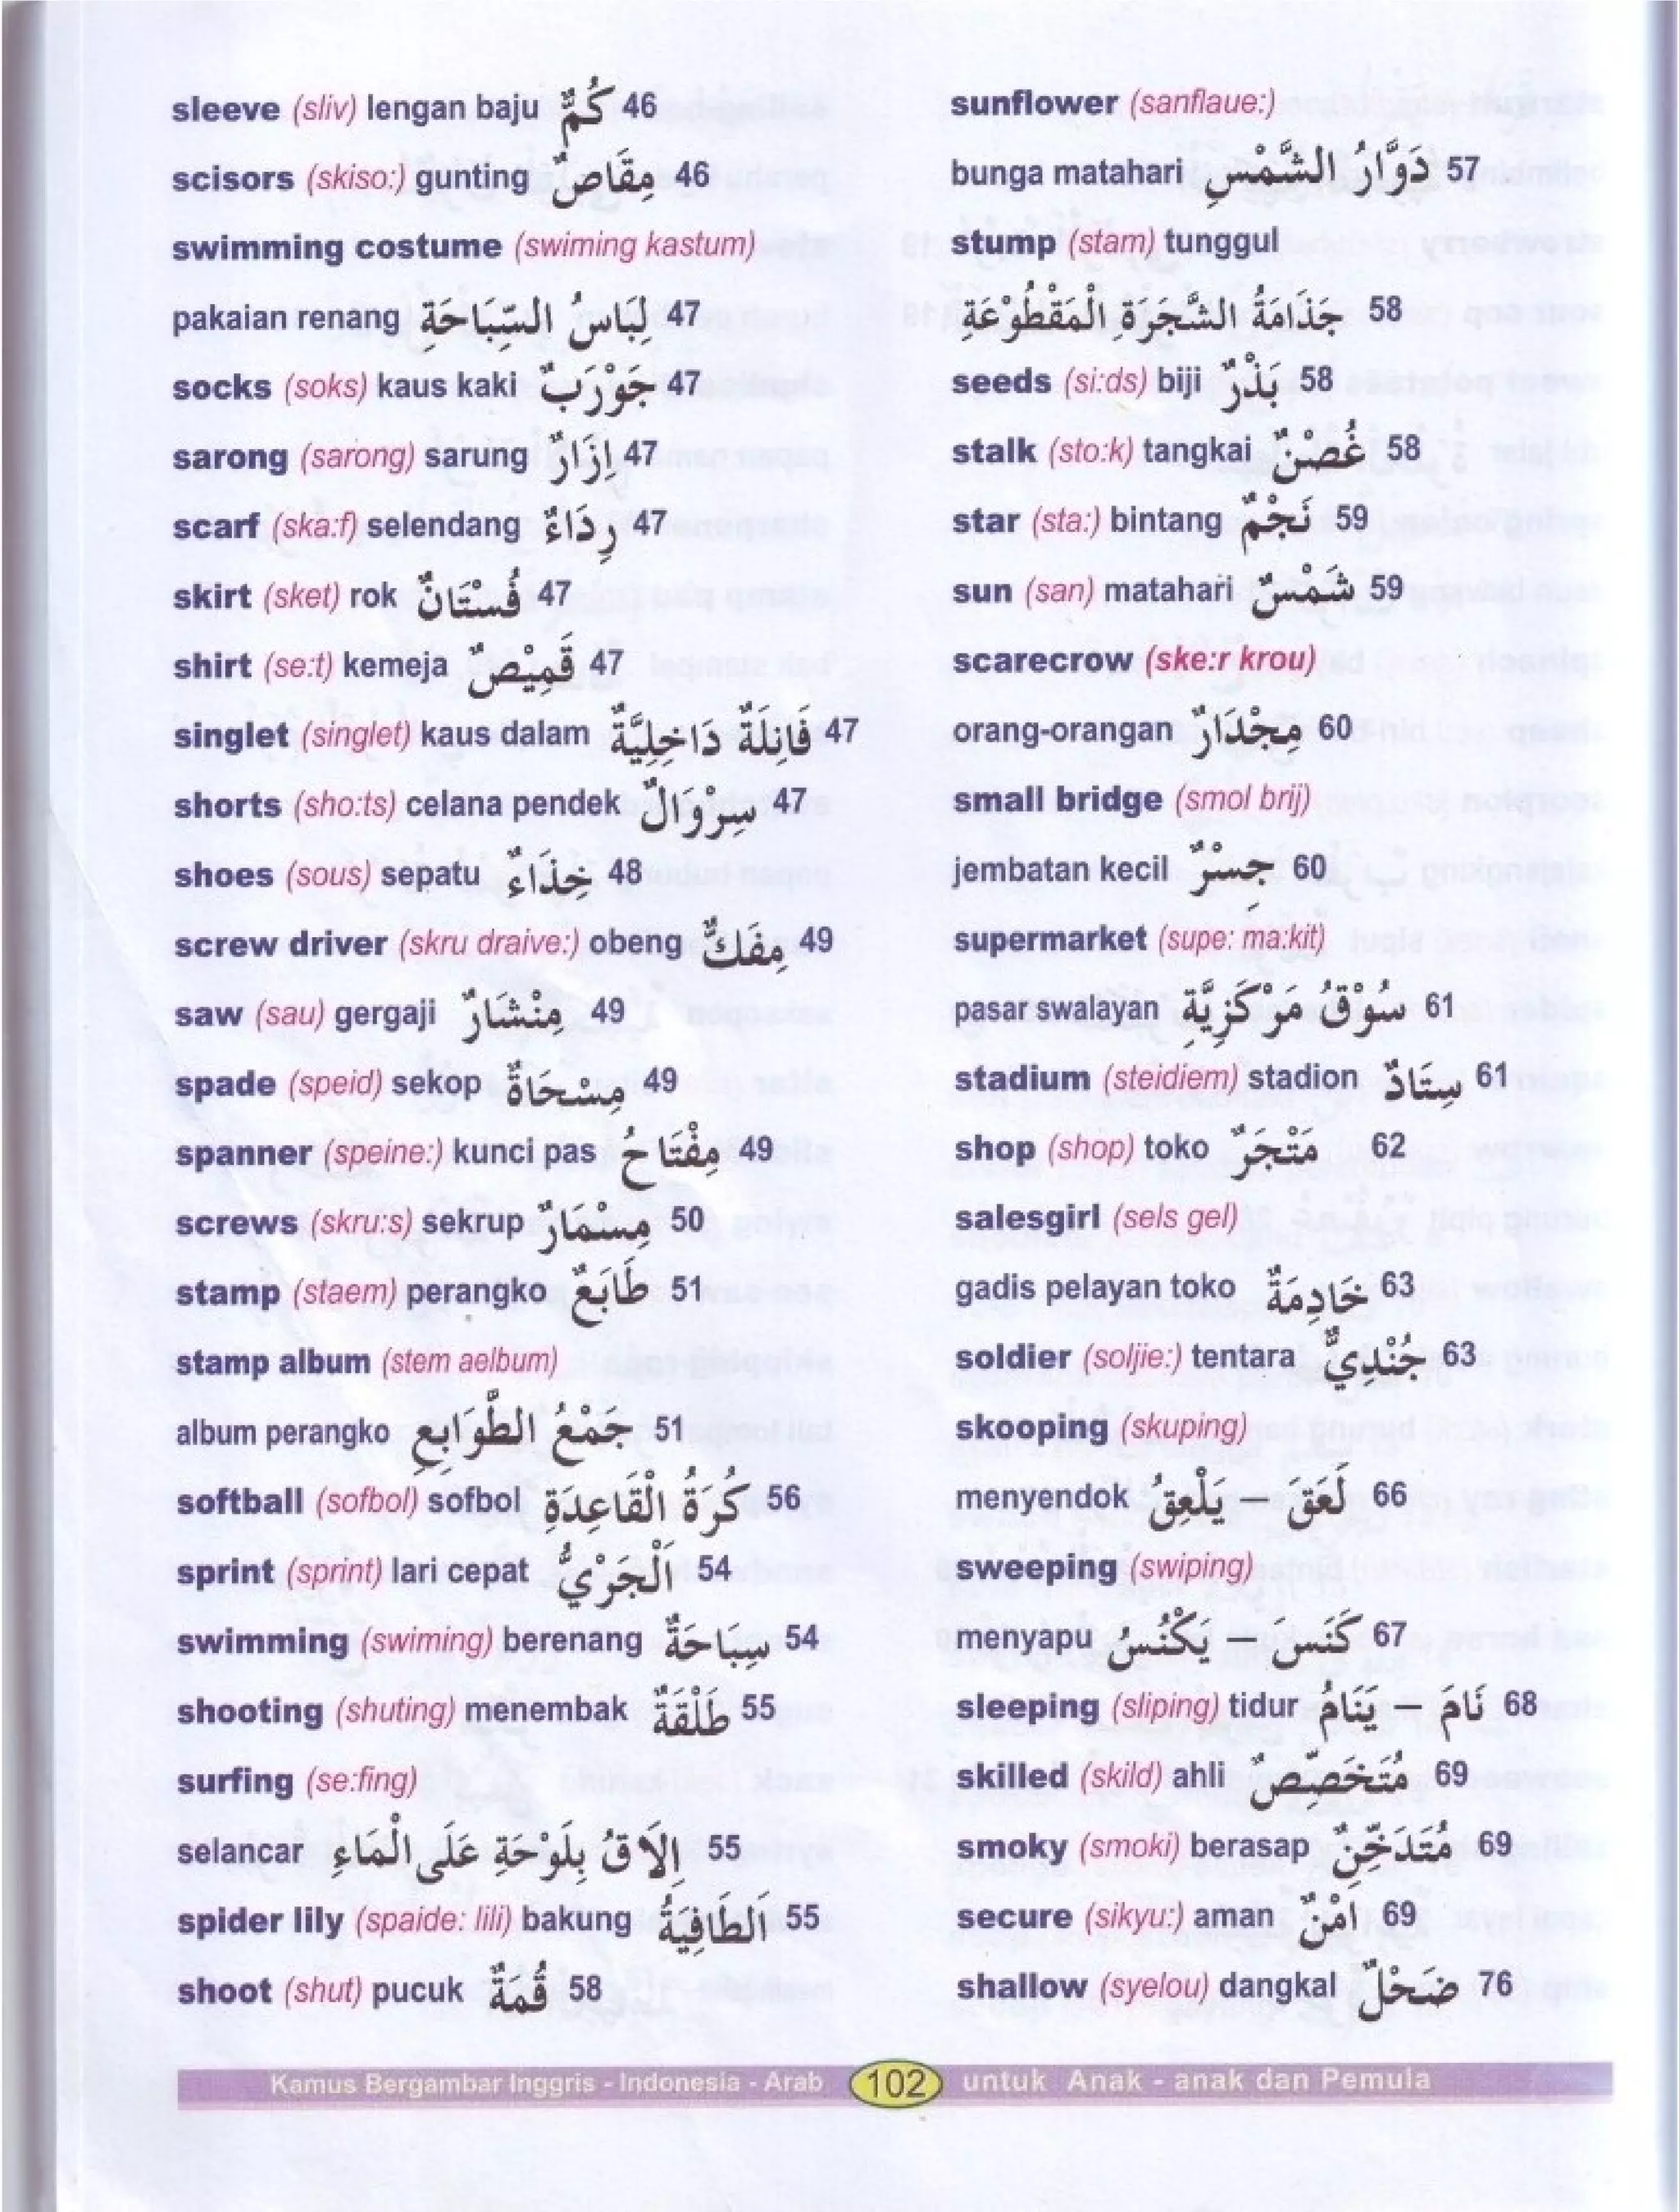 sleeve (sliv) lengan baju كُمٌّ 46
scisors (skiso:) gunting مِقَاصٌ 46
swimming costume (swiming kastum)
pakaian renang لِبَاسُ السِّبَاحَةِ 47
socks (soks) kaus kaki جَوْرَبٌ 47
sarong (sarong) sarung إِزَارٌ 47
scarf (ska:f) selendang رِدَاءٌ 47
skirt (sket) rok فُسْتَانٌ 47
shirt (se:t) kemeja قَمِيْصٌ 47
singlet (singlet) kaus dalam فَانِلَةٌ دَاخِلِيَّةٌ 47
shorts (sho:ts) celana pendek سِرْوَالٌ 47
shoes (sous) sepatu حِذَاءٌ 48
screw driver (skru draive:) obeng مِفَكٌّ 49
saw (sau) gergaji مِنْشَارٌ 49
spade (speid) sekop مِسْحَاةٌ 49
spanner (speine:) kunci pas مِفْتَاحُ 49
screws (skru:s) sekrup مِسْمَارٌ 50
stamp (staem) perangko طَابَعٌ 51
stamp album (stem aelbum)
album perangko جَمْعُ الطَّوَابِعِ 51
softball (sofbol) sofbol كُرَةُ الْقَاعِدَةِ 56
sprint (sprint) lari cepat اَلْجَرْيُ 54
swimming (swiming) berenang سِبَاحَةٌ 54
shooting (shuting) menembak طَلْقَةٌ 55
surfing (se:fing)
selancar إِلَاقُ بِلَوْحَةِ عَلَى الْمَاءِ 55
spider lily (spaide: lili) bakung الطَافِيَةُ 55
shoot (shut) pucuk قُمَةٌ 58
sunflower (sanflaue:)
bunga matahari دَوَّارُ الشَّمْسِ 57
stump (stam) tunggul
جَذَامَةُ الشَّجَرَةِ الْمَقْطُوْعَةِ 58
seeds (si:ds) biji بَذْرٌ 58
stalk (sto:k) tangkai غُصْنٌ 58
star (sta:) bintang نَجْمٌ 59
sun (san) matahari شَمْسٌ 59
scarecrow (ske:r krou)
orang-orangan مِجْدَارٌ 60
small bridge (smol brij)
jembatan kecil جِسْرٌ 60
supermarket (supe: ma:kit)
pasar swalayan سُوْقُ مَرْكَزِيَّةِ 61
stadium (steidiem) stadion سِتَادٌ 61
shop (shop) toko مَتْجَرٌ 62
salesgirl (sels gel)
gadis pelayan toko خَادِمَةٌ 63
soldier (soljie:) tentara جُنْدِيٌّ 63
skooping (skuping)
menyendok لَعَقَ – يَلْعِقُ 66
sweeping (swiping)
menyapu كَنَسَ – يَكْنُسُ 67
sleeping (sliping) tidur نَامَ – يَنَامُ 68
skilled (skild) ahli مُتَخَصِّصٌ 69
smoky (smoki) berasap مُتَدَخِّنٌ 69
secure (sikyu:) aman امْنٌ 69
shallow (syelou) dangkal ضَحْلٌ 76
Kamus Bergambar Inggris - Indonesia - Arab 102 untuk Anak - anak dan Pemula